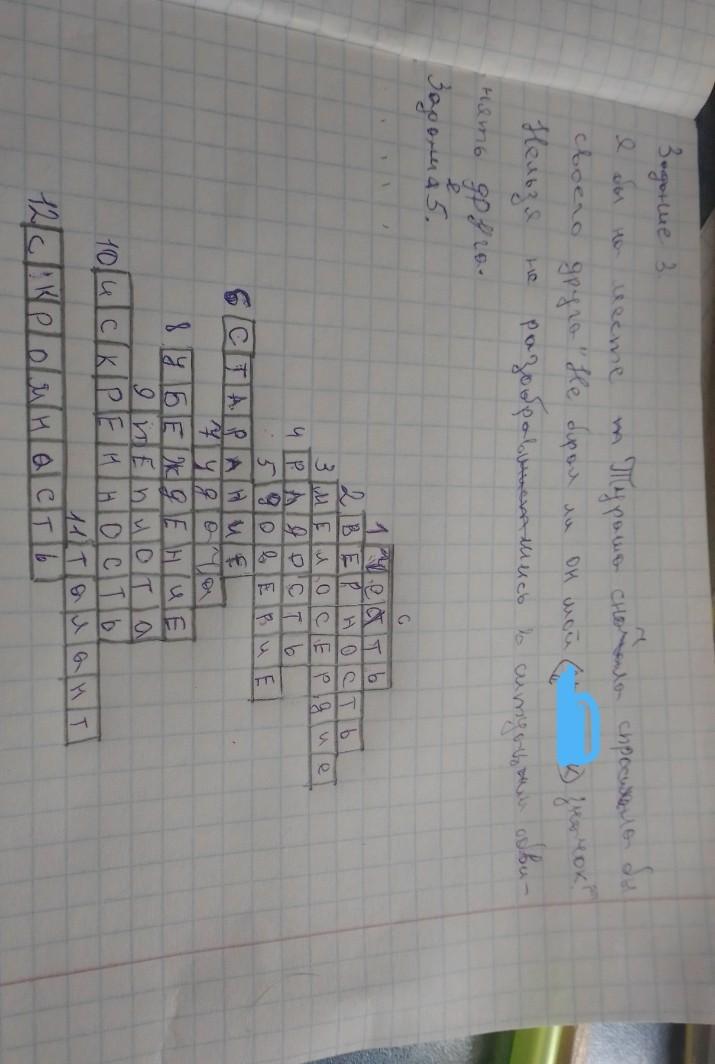 Задание 3
Я бы на месте Тураша сначала спросила бы
своего друга "Не брал ли он мой значок?"
Нельзя не разобравшись в ситуации обви-
нять друга.
Задание 5.
с
1 честь
2 ВЕРНОСТЬ
3 МЕЛОСЕРДИЕ
4 РАДОСТЬ
5 ДОВЕРИЕ
6 СТАРАНИЕ
7 удача
8 УБЕЖДЕНИЕ
9
10 ИСКРЕННОСТЬ
11 талант
12 СКРОМНАСТЬ